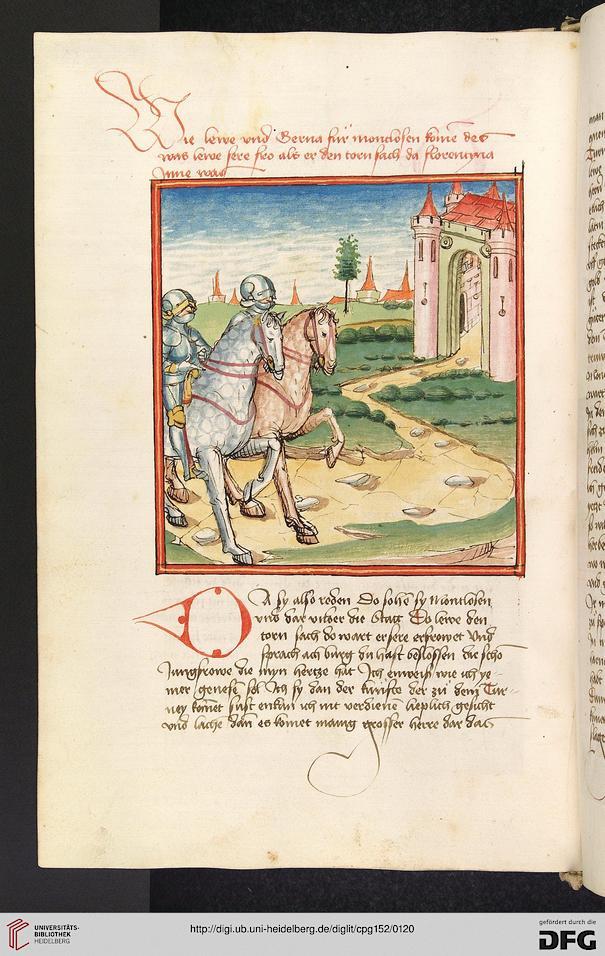 Wie lewe vnd Gerna fur montlosen kome des
was lewe sere fro als er den torn sach da florentyna
jnne was
DA sy also reden Do sohe sy Montlosen
vnd dar vßer die Stat Do lewe den
torn sach do wart er sere erfrowet Vnd
sprach ach burg du hast beslossen die schon
Jungfrowe die myn hertze hat Ich enweiß wie ich ye-
mer genese sol Ich sy dan der der zu dem Tur-
ney komet sust enkan ich nit verdienen lieplich gesicht
vnd lache dan es komet manig grosser herre dar das
UNIVERSITÄTS-
BIBLIOTHEK
HEIDELBERG
http://digi.ub.uni-heidelberg.de/diglit/cpg152/0120
gefördert durch die
DFG